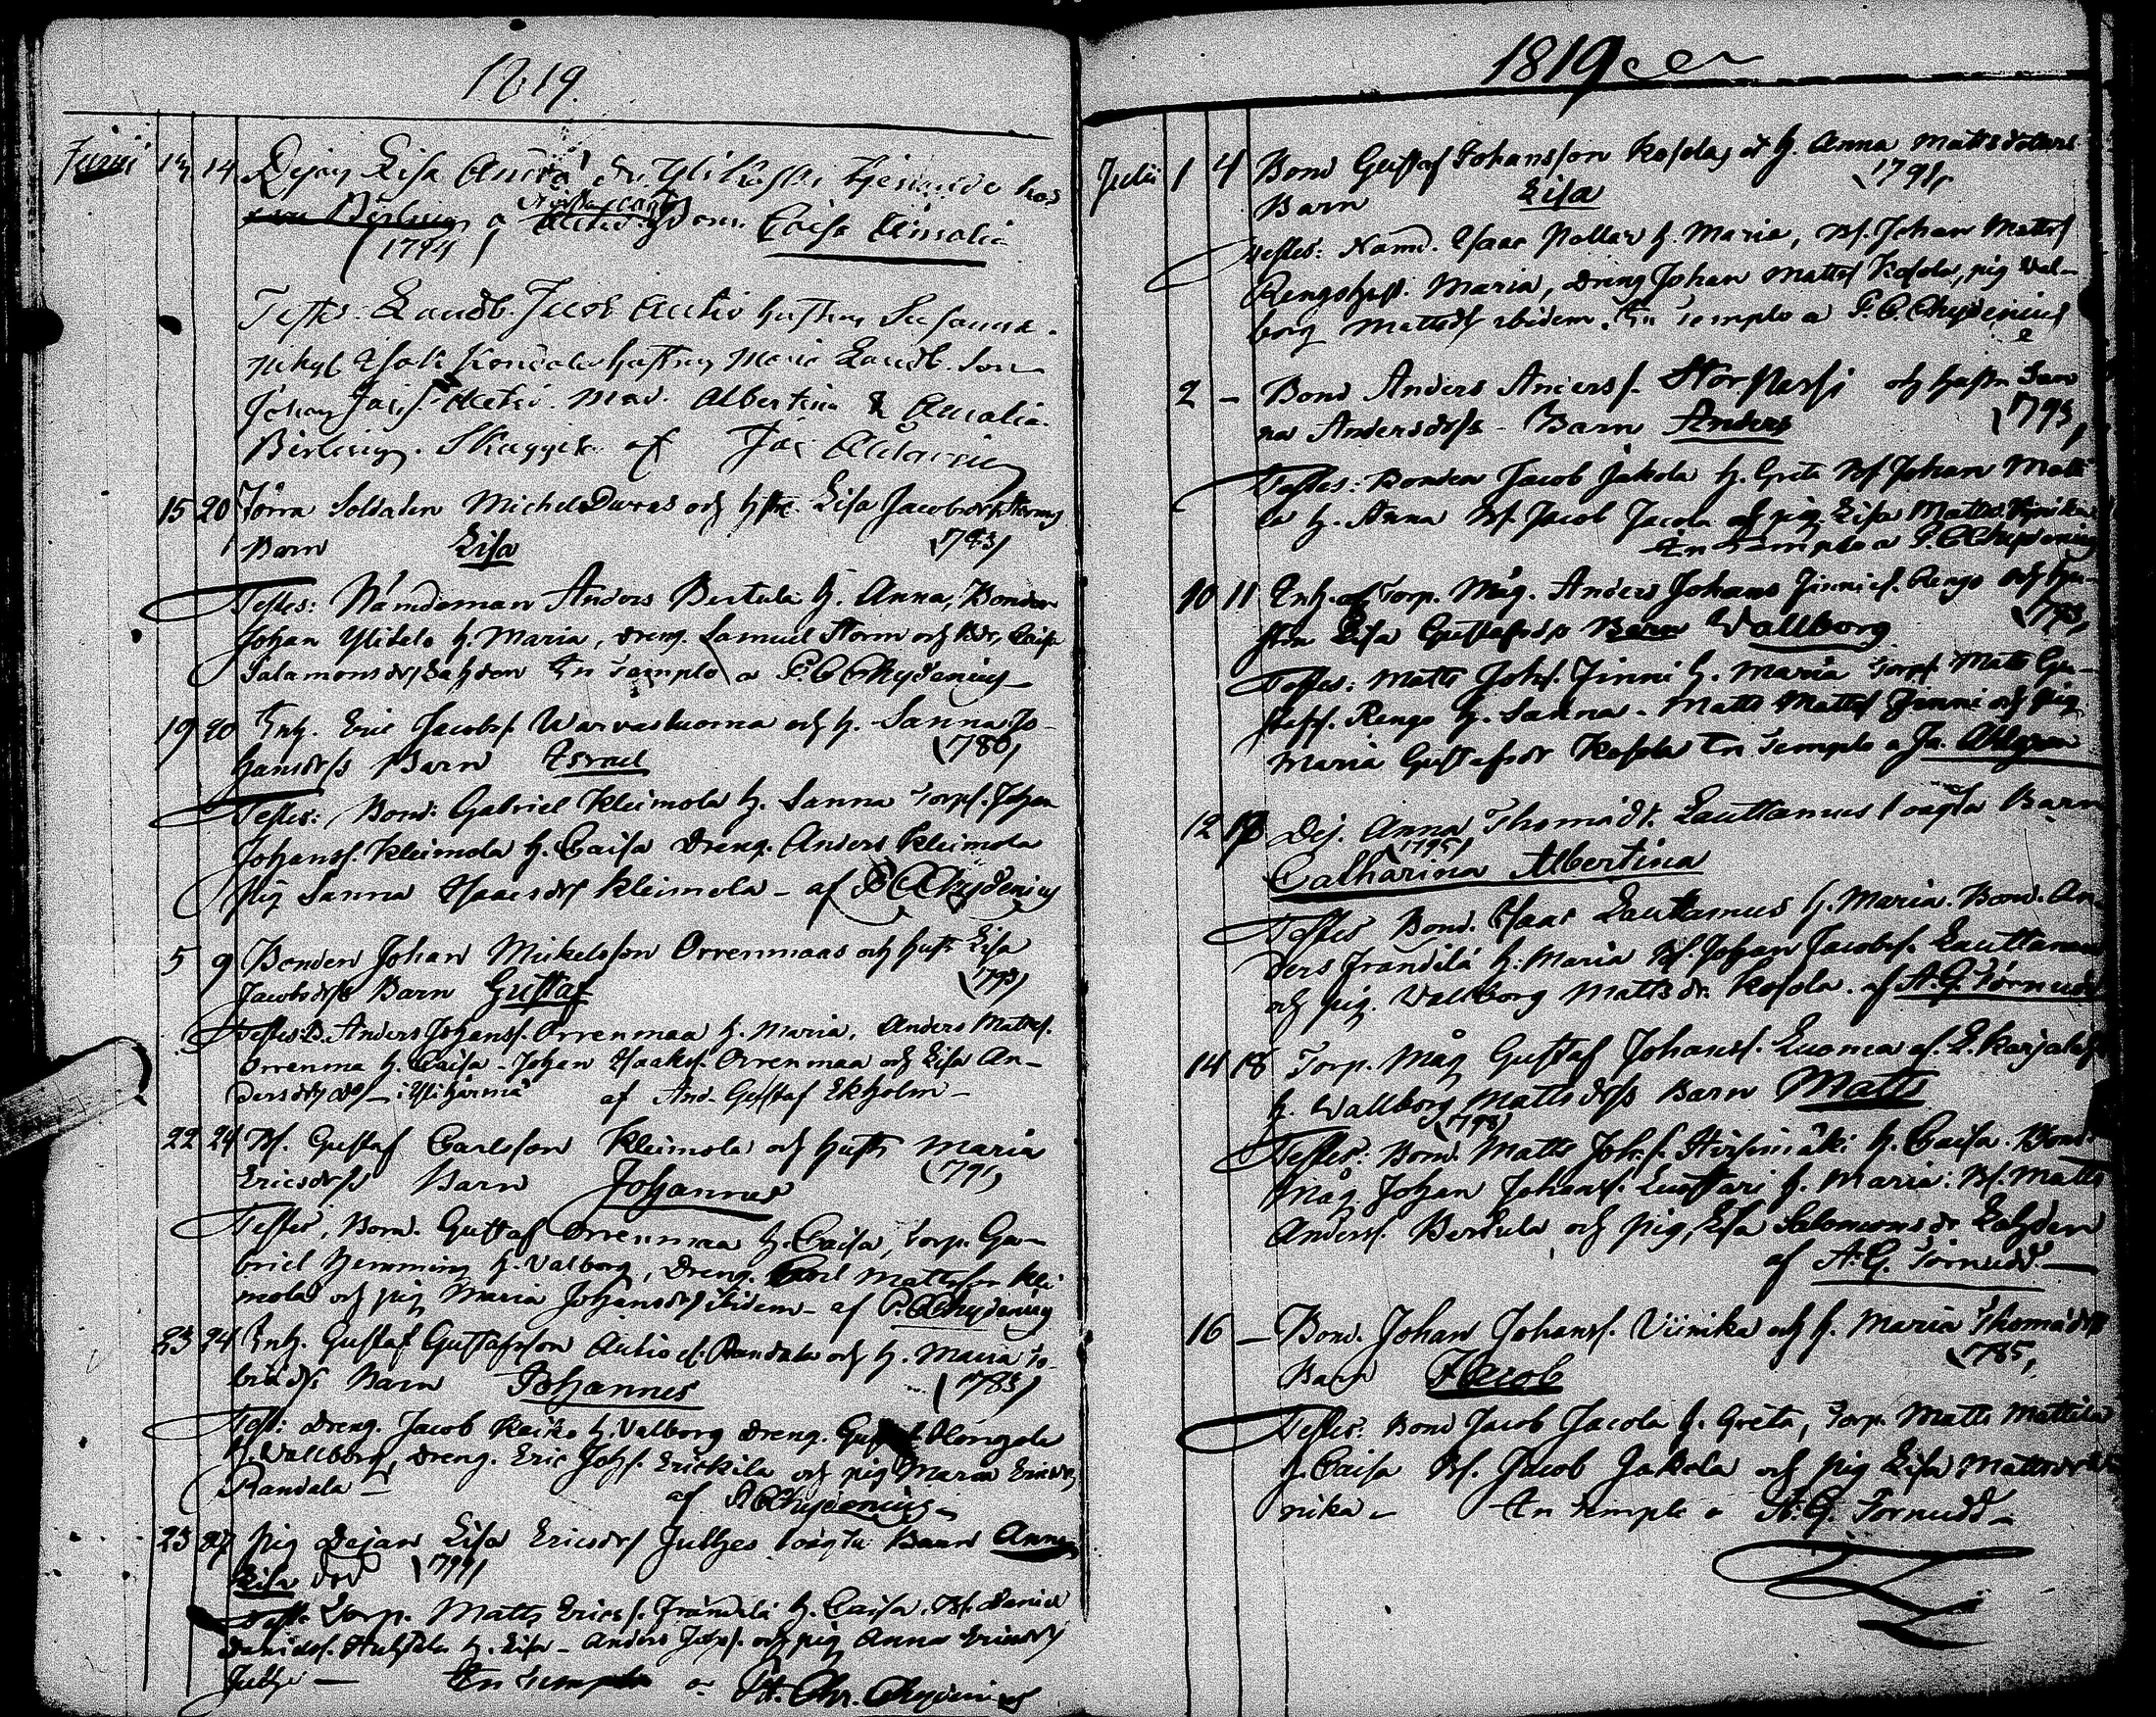 1819.
Junii 13 14 Dejan Lisa tjenande hos
Birling a Caisa Amalia
1794
Testes. Landb. Jacob Autio hustru Susanna.
hustru Maria Landb. Son
Johan Autio. Mad. Albertina & Amalia
Birling. af
15 20 förra Soldaten Michel Durras och hstr. Lisa Jacobsdr
Barn Lisa 1793
Testes: Nämdeman Anders Bertula h. Anna, Bonden
Johan Ylitalo h. Maria, dreng. Samuel Storm och Caisa
Salamonsdr In Templo a P. C. Chydenius
19 20 Inh. Eric Jacobss. Warvasluoma och h. Sanna Jo-
hansdr Barn Israel 1780
Testes: Bond. Gabriel Kleimola h. Sanna Torps. Johan
Johanss. Kleimola h. Caisa Dreng. Anders Kleimola
pig Sanna Isaacsdr Kleimola - af P C Chydenius
5 9 Bonden Johan Mickelsson Orrenmaas och hustr Lisa
Jacobsdrs Barn Gustaf 1793
Testes: B. Anders Johanss. Orrenmaa h. Maria. Anders Matts.
Orrenma h. Caisa. Johan Isaaks. Orrenmaa och Lisa An-
dersdr - i Ylihärmä af And. Gustaf Ekholm -
22 24 Bs. Gustaf Carlsson Kleimola och hustr Maria
Ericsdrs Barn Johannes 1791
Testes, Bond. Gustaf Orrenmaa h. Caisa, Torp. Ga-
briel Hemming h. Valborg, Dreng. Carl Mattsson Klei
mola och pig Maria Johansdr ibidem - af P. C Chydenius
23 24 Inh. Gustaf Gustafsson Autio Randala och h. Maria To-
biædr Barn Johannes 1783
Test: dreng. Jacob Kaiko h. Valborg Dreng. Gustaf
h. Vallborg, dreng. Eric Johs. Erickila och pig Maria Ericsdr
Randala - af P C Chydenius -
23 27 pig Dejan Lisa Ericsdr Jullhes oägta Barn Anna
Lisa 1799
Test. Torp. Matts Ericss. Frändilä h. Caisa. Bs. Daniel
Danielss. Huhtala h. Lisa - Anders Johss. och pig Anna Ericsdr
In Templo a P. Chr. Chydenius
1819
Julii 1 4 Bond Gustaf Johansson Kosolas och h. Anna Mattsdotters
Barn Lisa 1791
Testes: Nämd. Isaac Pollari h. Maria, Bs. Johan Matts
Rengo h. Maria, dreng Johan Matts Kosola, pig Val-
borg Mattsdr ibidem. In Templo a P. C. Chydenius
2 - Bond Anders Anderss. Storpassi och hustr San
na Andersdrs - Barn Anders 1793
Testes: Bonden Jacob Jakola h. Greta Bs Johan Matti
la h. Anna Bs. Jacob Jacola och pig Lisa Mattsd. Viinika
In Templo a P. C Chydenius
10 11 Inh. Torp. Måg. Anders Johans Finni Rengo och hu-
stru Lisa Gustafsdrs Barn Wallborg 1793
Testes: Matts Johs. Finni h. Maria Torps Matts Gu-
stafs. Rengo h. Sanna. Matts Matts Finni och pig
Maria Gustafsdr Kosola In Templo a Ja. Ahlgren
12 18 Dej. Anna Thomædr. Lauttamus oägta Barn
1795
Catharina Albertina
Testes Bond. Isaac Lauttamus h. Maria. Bond. An-
ders Frändilä h. Maria Bs. Johan Jacobss. Lauttamus
och pig. Wallborg Mattsdr. Kosola. af A. G. Törnudd
14 18 Torp. Måg Gustaf Johanss. Luoma
h. Wallborg Mattsdrs Barn Matts
1798
Testes: Bond. Matts Johs. Hirsimäki h. Caisa. Bond.
Måg. Johan Johanss. Luostari h. Maria: Bs. Matts
Anderss. Bertula och pig, Lisa Salomonsdr
af A. G. Törnudd. -
16 - Bond. Johan Johanss. Viinika och h. Maria Thomædrs
Barn Jacob 1785
Testes: Bond Jacob Jacola h. Greta, Torp. Matts Mattila
h. Caisa Bs. Jacob Jakola och pig Lisa Mattsdr Vii
nika - In Templo a A. G. Törnudd -